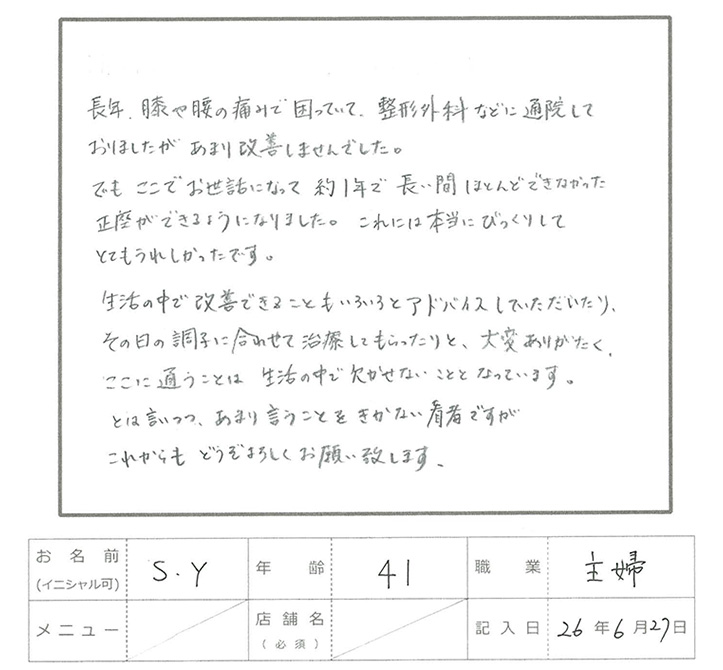 長年、膝や腰の痛みで困っていて、整形外科などに通院して
おりましたが あまり改善しませんでした。
でも ここでお世話になって 約1年で 長い間ほとんどできなかった
正座ができるようになりました。 これには本当にびっくりして
とてもうれしかったです。
生活の中で改善できることもいろいろとアドバイスしていただいたり、
その日の調子に合わせて治療してもらったりと、大変ありがたく、
ここに通うことは 生活の中で欠かせないこととなっています。
とは言いつつ、あまり言うことをきかない患者ですが
これからも どうぞよろしくお願い致します。
お名前 (イニシャル可) S.Y 年齢 41 職業 主婦
メニュー 店舗名 (必須) 記入日 26年6月27日